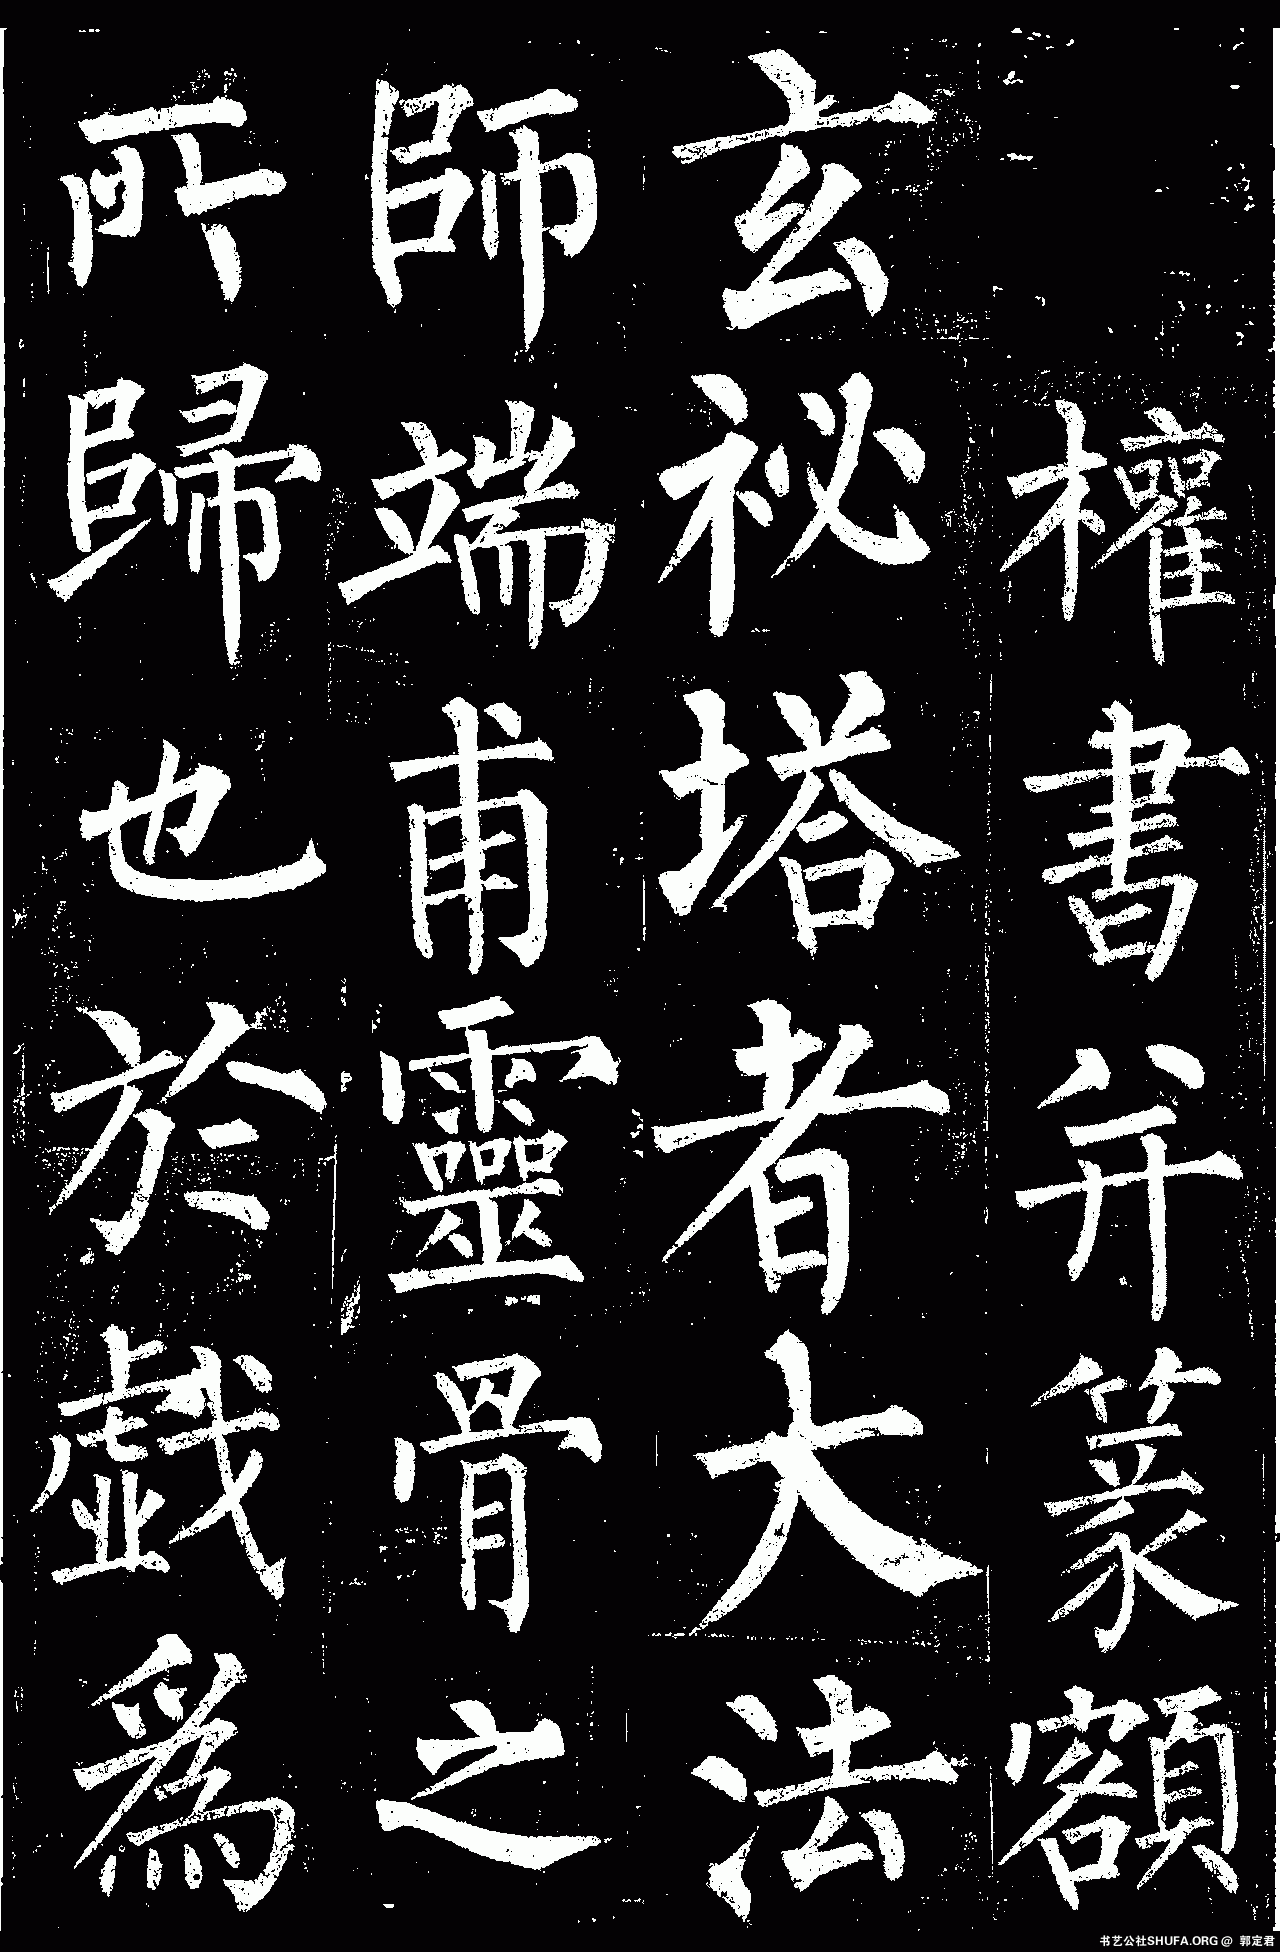 權書并篆額
玄祕塔者大法
師端甫靈骨之
所歸也於戲為
书艺公社SHUFA.ORG @ 郭定君